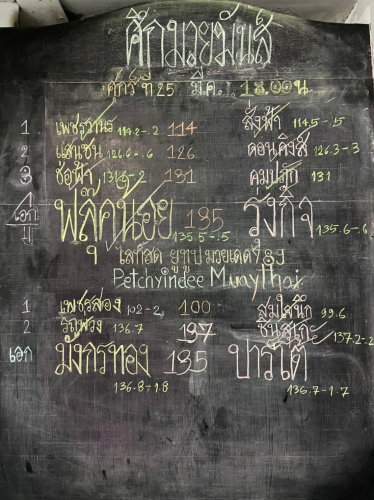 ศึกมวยมันส์
ศุกร์ ที่ 25 มี.ค. 18.00น.
1 เพชรภูธร 114.2-.2 114 สิงฟ้า 114.5-.5
2 แสนชน 126.6-.6 126 ดอนคิงส์ 126.3-3
3 ช่อฟ้า 131.5-2 131 คมปฏัก 131
เอก พลุ๊คน้อย 135.5-.5 135 รุ่งกิจ 135.6-.6
ไลท์สด ยูทูป มวยเด็ด789
Petchyindee MuayThai
1 เพชรส่อง 102-2 100 สมใจนึก 99.6
2 136.7 137 137.2-2
เอก มังกรทอง 136.8-1.8 135 ปาร์เต้ 136.7-1.7